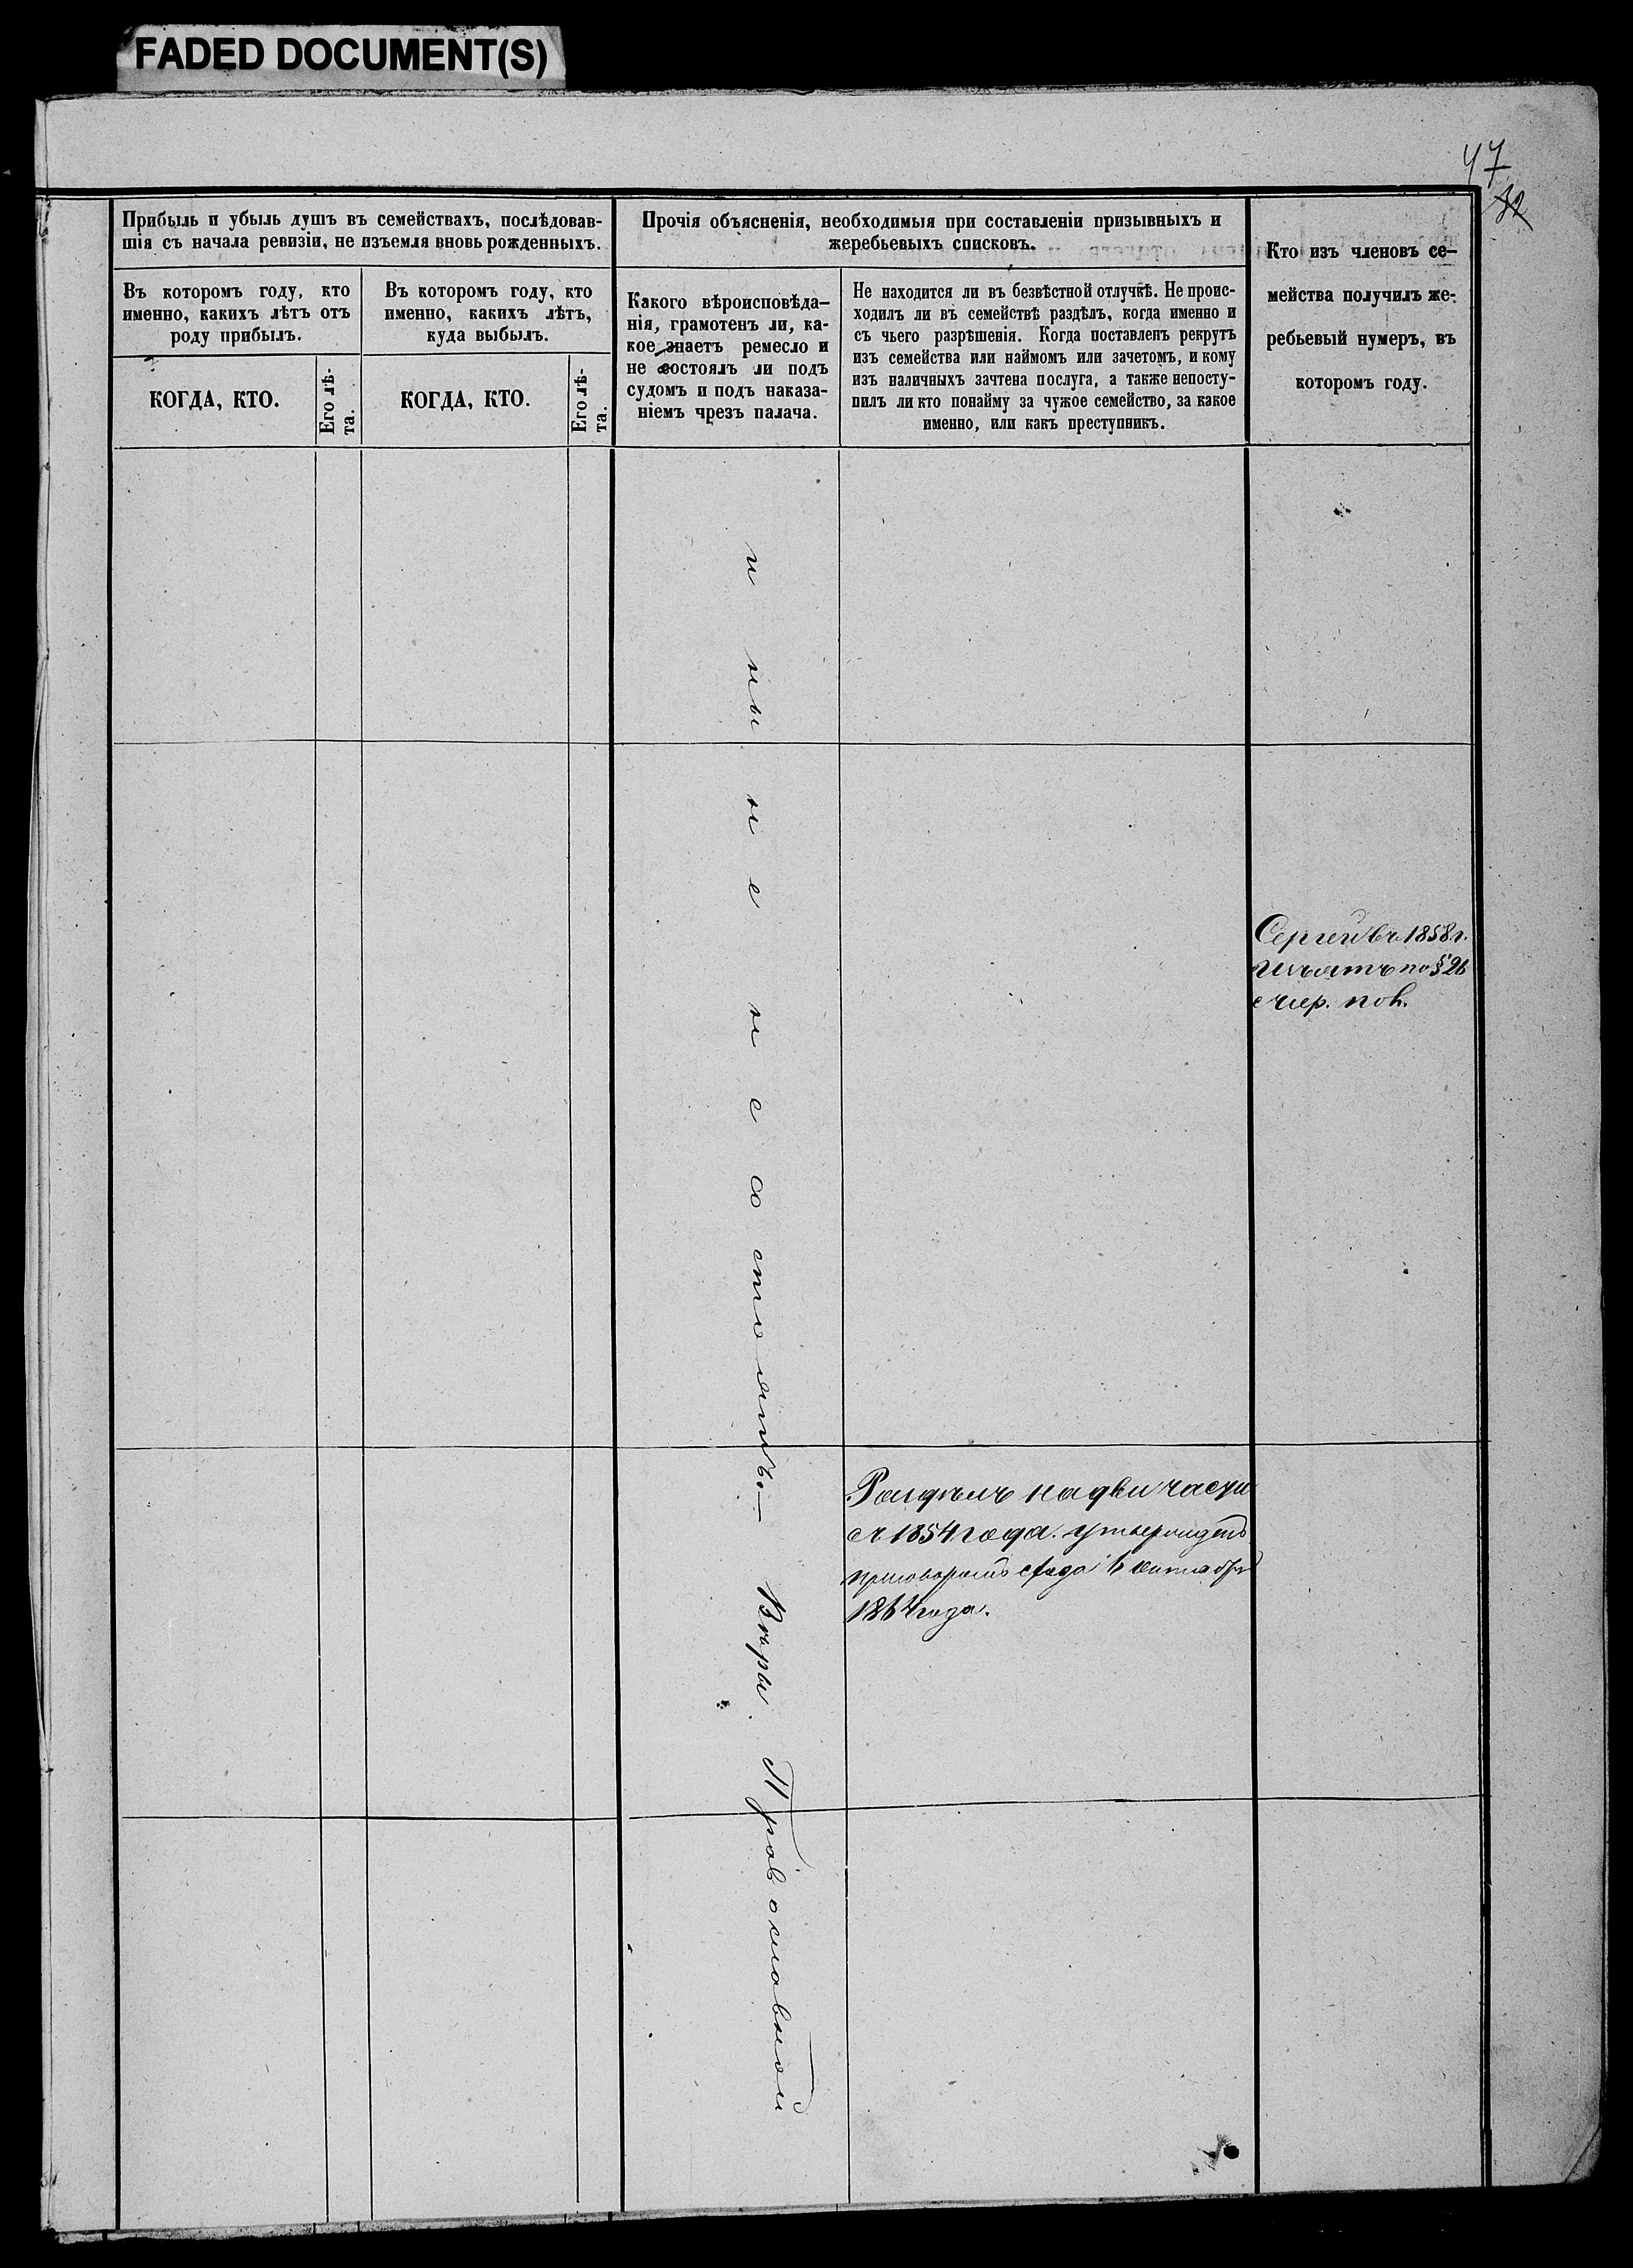 FADED DOCUMENT(S)
47
32
Прибыль и убыль душъ въ семействахъ, послѣдовав-
шія съ начала ревизіи, не изъемля вновь рожденныхъ.
Въ которомъ году, кто
именно, какихъ лѣтъ отъ
роду прибылъ.
КОГДА, КТО.
Его лѣ-
та.
Въ которомъ году, кто
именно, какихъ лѣтъ,
куда выбылъ.
КОГДА, КТО.
Его лѣ-
та.
Прочія объясненія, необходимыя при составленіи призывныхъ и
жеребьевыхъ списковъ.
Какого вѣроисповѣда-
нія, грамотенъ ли, ка-
кое знаетъ ремесло и
не состоялъ ли подъ
судомъ и подъ наказа-
ніемъ чрезъ палача.
Не находится ли въ безвѣстной отлучкѣ. Не проис-
ходилъ ли въ семействѣ раздѣлъ, когда именно и
съ чьего разрѣшенія. Когда поставленъ рекрутъ
изъ семейства или наймомъ или зачетомъ, и кому
изъ наличныхъ зачтена послуга, а также непосту-
пилъ ли кто понайму за чужое семейство, за какое
именно, или какъ преступникъ.
Кто изъ членовъ се-
мейства получилъ же-
ребьевый нумеръ, въ
которомъ году.
Сергей въ 1858 г.
изъятъ по § 26
жер. пол.
Раздѣлъ на две части
съ 1854 года. утвержденъ
приговоромъ схода 6 октября
1864 года.
Вѣры Православной
и ны не не состоятъ —